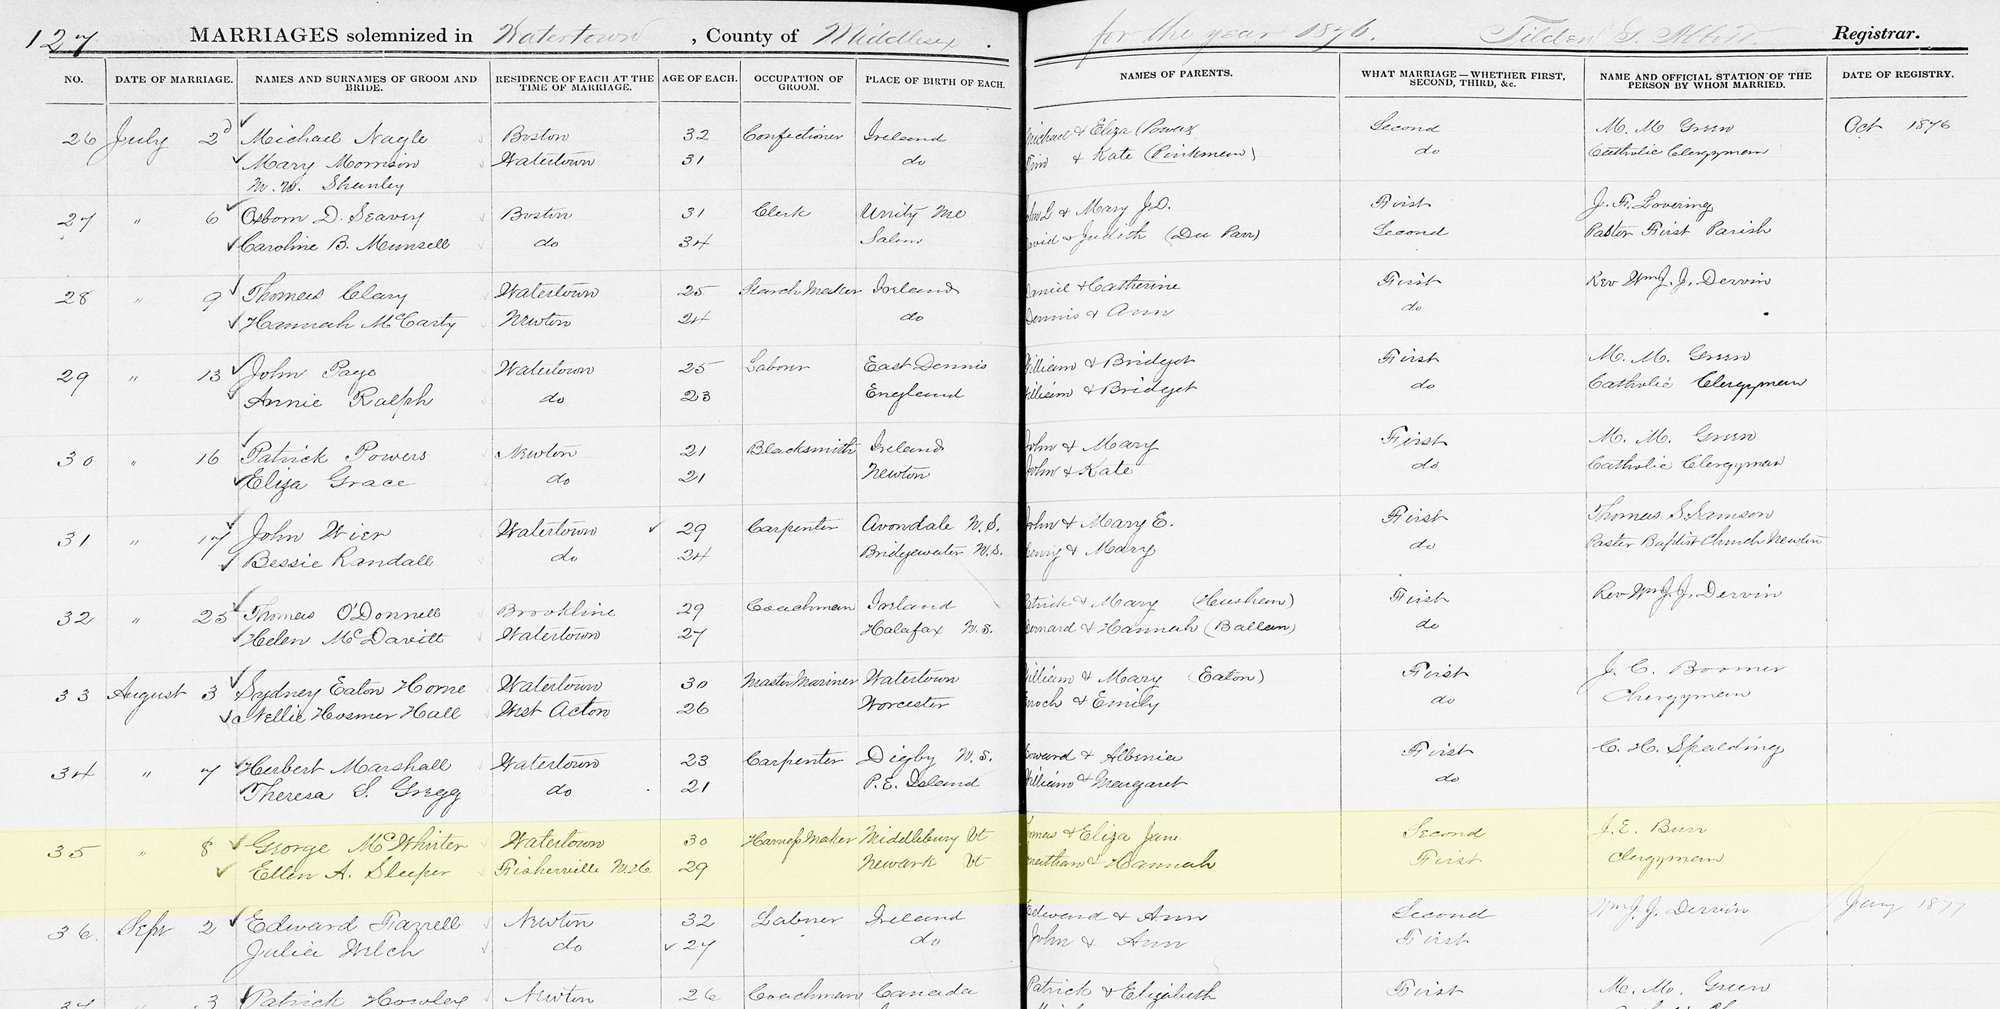 127 MARRIAGES solemnized in Watertown, County of Middlesex. for the year 1876. Tilden G. Abbott Registrar.
NO. DATE OF MARRIAGE. NAMES AND SURNAMES OF GROOM AND BRIDE. RESIDENCE OF EACH AT THE TIME OF MARRIAGE. AGE OF EACH. OCCUPATION OF GROOM. PLACE OF BIRTH OF EACH. NAMES OF PARENTS. WHAT MARRIAGE — WHETHER FIRST, SECOND, THIRD, &c. NAME AND OFFICIAL STATION OF THE PERSON BY WHOM MARRIED. DATE OF REGISTRY.
26 July 2d Michael Nagle Boston 32 Confectioner Ireland Michael & Eliza (Powers Second M. M Green Oct 1876
Mary Morrisin Watertown 31 do & Kate (Pinkman) do Catholic Clergyman
M. W. Shunley
27 " 6 Osborn D. Seavey Boston 31 Clerk Unity Me John L & Mary J.D. First J. F. Lovering
Caroline B. Munsell do 34 Salem David & Judith (Du Parr) Second Pastor First Parish
28 " 9 Thomas Clary Watertown 25 Starch Maker Ireland Daniel & Catherine First Rev Wm J. J. Dervin
Hannah McCarty Newton 24 do Dennis & Ann do
29 " 13 John Page Watertown 25 Labour East Dennis William & Bridget First M. M. Green
Annie Ralph do 23 England William & Bridget do Catholic Clergyman
30 " 16 Patrick Powers Newton 21 Blacksmith Ireland John & Mary First M. M. Green
Eliza Grace do 21 Newton John & Kate do Catholic Clergyman
31 " 17 John Wier Watertown 29 Carpenter Avondale N.S. John & Mary E. First Thomas S Samson
Bessie Randall do 24 Bridgewater N.S. Henry & Mary do Pastor Baptist Church Newton
32 " 25 Thomas O'Donnell Brookline 29 Coachman Ireland Patrick & Mary (Heushan) First Rev Wm J. J. Dervin
Helen McDavitt Watertown 27 Halafax N.S. Bernard & Hannah (Ballan) do
33 August 3 Sydney Eaton Horne Watertown 30 Master Mariner Watertown William & Mary (Eaton) First J. C. Boomer
Nellie Hosmer Hall West Acton 26 Worcester Enoch & Emily do Clergyman
34 " 7 Herbert Marshall Watertown 23 Carpenter Digby N.S. Edward & Albenia First C. H. Spalding
Theresa S. Gregg do 21 P.E. Island William & Margaret do
35 " 8 George McWhirter Watertown 30 Harness Maker Middlebury Vt Thomas & Eliza Jane Second J. E. Burr
Ellen A. Sleeper Fisherville N.H. 29 Newark Vt Jonathan & Hannah First Clergyman
36 Sept 2 Edward Farrell Newton 32 Labner Ireland Edward & Ann Second Wm J. J. Dervin Jany 1877
Julia Welch do 27 do John & Ann First
37 " 3 Patrick Howley Newton 26 Coachman Canada Patrick & Elizabeth First M. M. Green